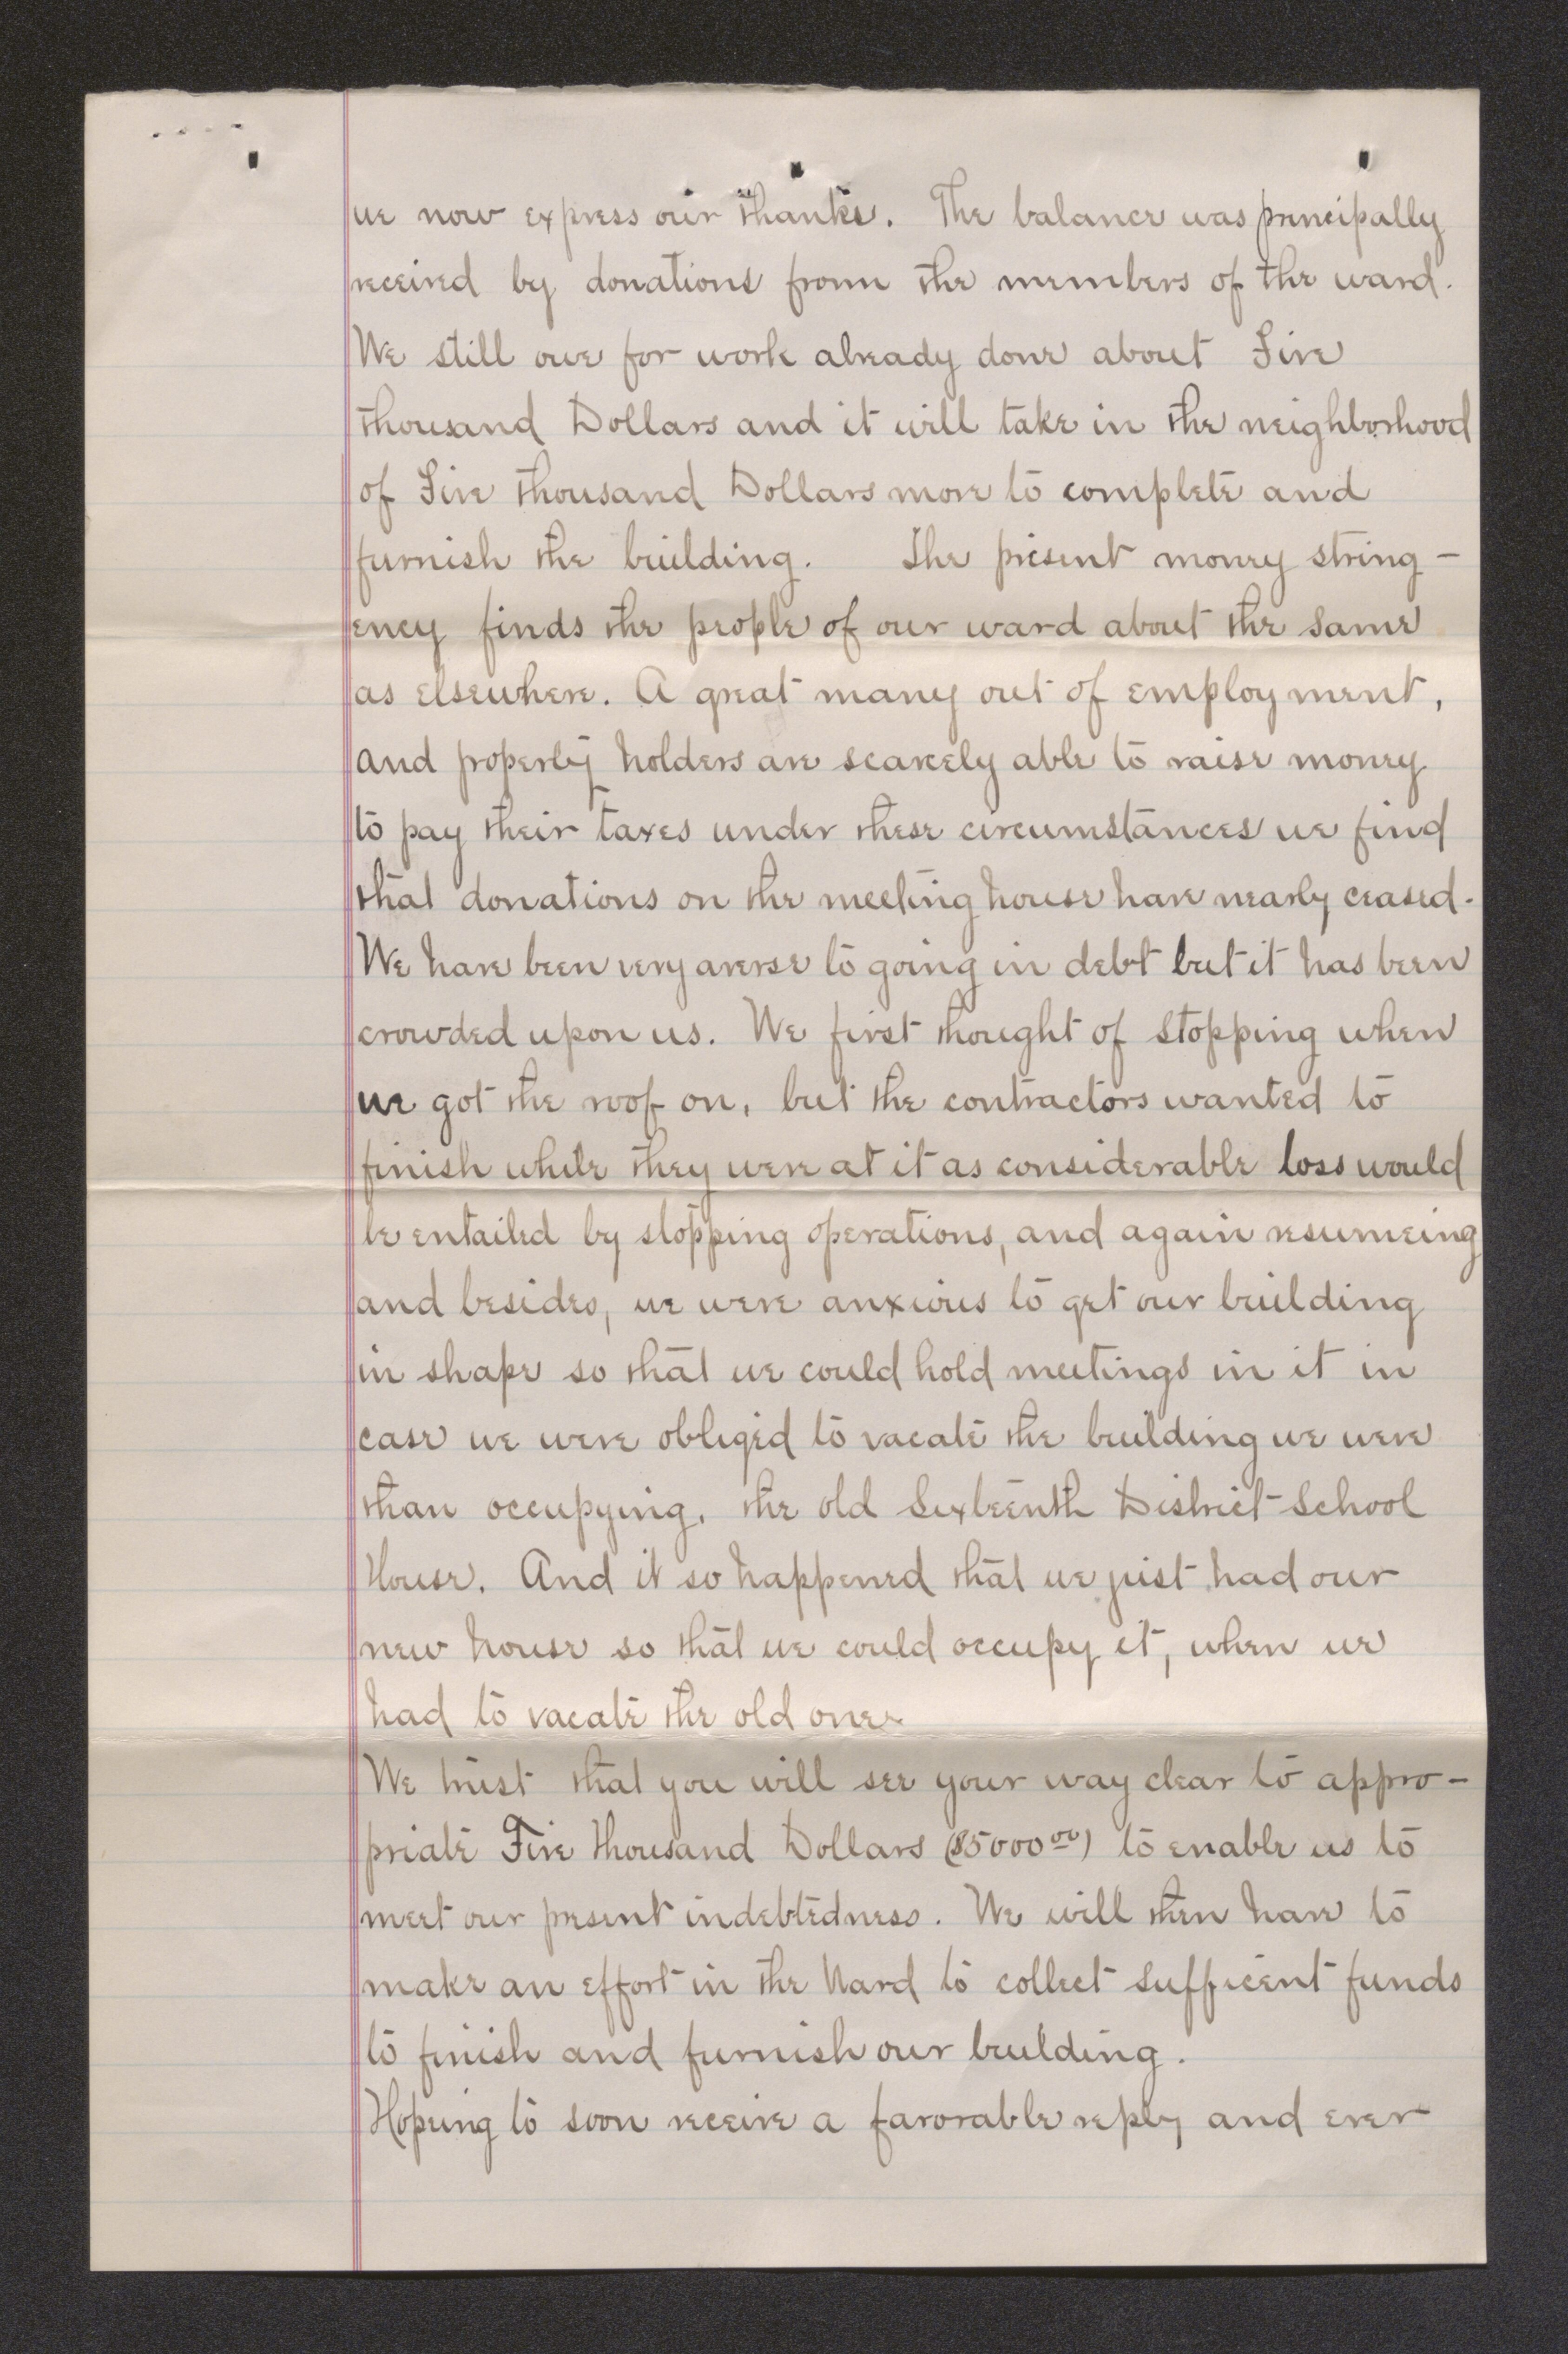 we now express our thanks. The balance was principally
received by donations from the members of the ward.
We still owe for work already done about Five
thousand Dollars and it will take in the neighborhood
of Five thousand Dollars more to complete and
furnish the building. The present money string-
ency finds the people of our ward about the same
as elsewhere. A great many out of employment,
and property holders are scarcely able to raise money
to pay their taxes under these circumstances we find
that donations on the meeting house have nearly ceased.
We have been very averse to going in debt but it has been
crowded upon us. We first thought of stopping when
we got the roof on, but the contractors wanted to
finish while they were at it as considerable loss would
be entailed by stopping operations, and again resumeing
and besides, we were anxious to get our building
in shape so that we could hold meetings in it in
case we were obliged to vacate the building we were
than occupying, the old Sixteenth District School
House. And it so happened that we just had our
new house so that we could occupy it, when we
had to vacate the old one.
We trust that you will see your way clear to appro-
priate Five thousand Dollars ($5000.00) to enable us to
meet our present indebtedness. We will then have to
make an effort in the Ward to collect sufficent funds
to finish and furnish our building.
Hopeing to soon receive a favorable reply and ever